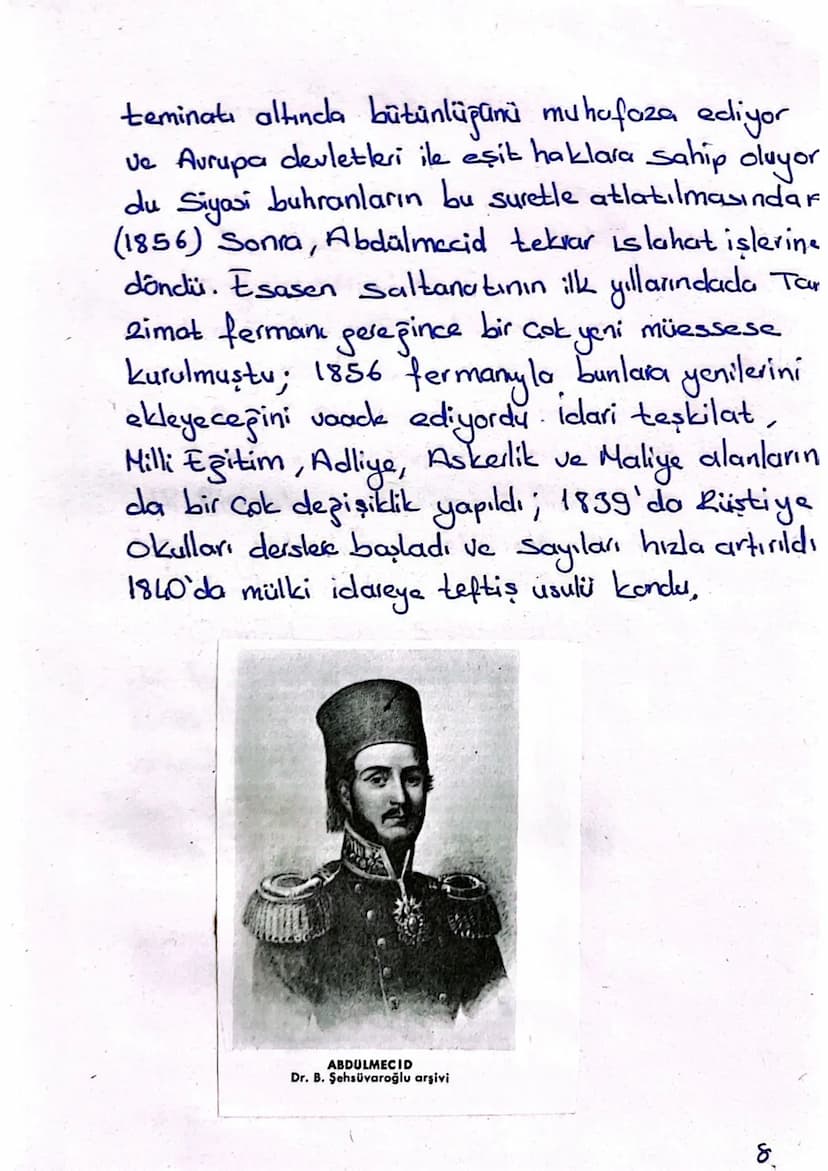 teminatı altında bütünlüğünü muhafaza ediyor
ve Avrupa devletleri ile eşit haklara sahip oluyor
du Siyasi buhranların bu suretle atlatılmasından
(1856) Sonra, Abdülmecid tekrar ıslahat işlerine
döndü. Esasen saltanatının ilk yıllarındada Tan
zimat fermanı gereğince bir çok yeni müessese
kurulmuştu; 1856 fermanıyla bunlara yenilerini
ekleyeceğini vaade ediyordu. İdari teşkilat,
Milli Eğitim, Adliye, Askerlik ve Maliye alanların
da bir çok değişiklik yapıldı; 1839'da Rüştiye
Okulları derslere başladı ve sayıları hızla artırıldı
1840'da mülki idareye teftiş usulü kondu,
ABDULMECID
Dr. B. Şehsüvaroğlu arşivi
8